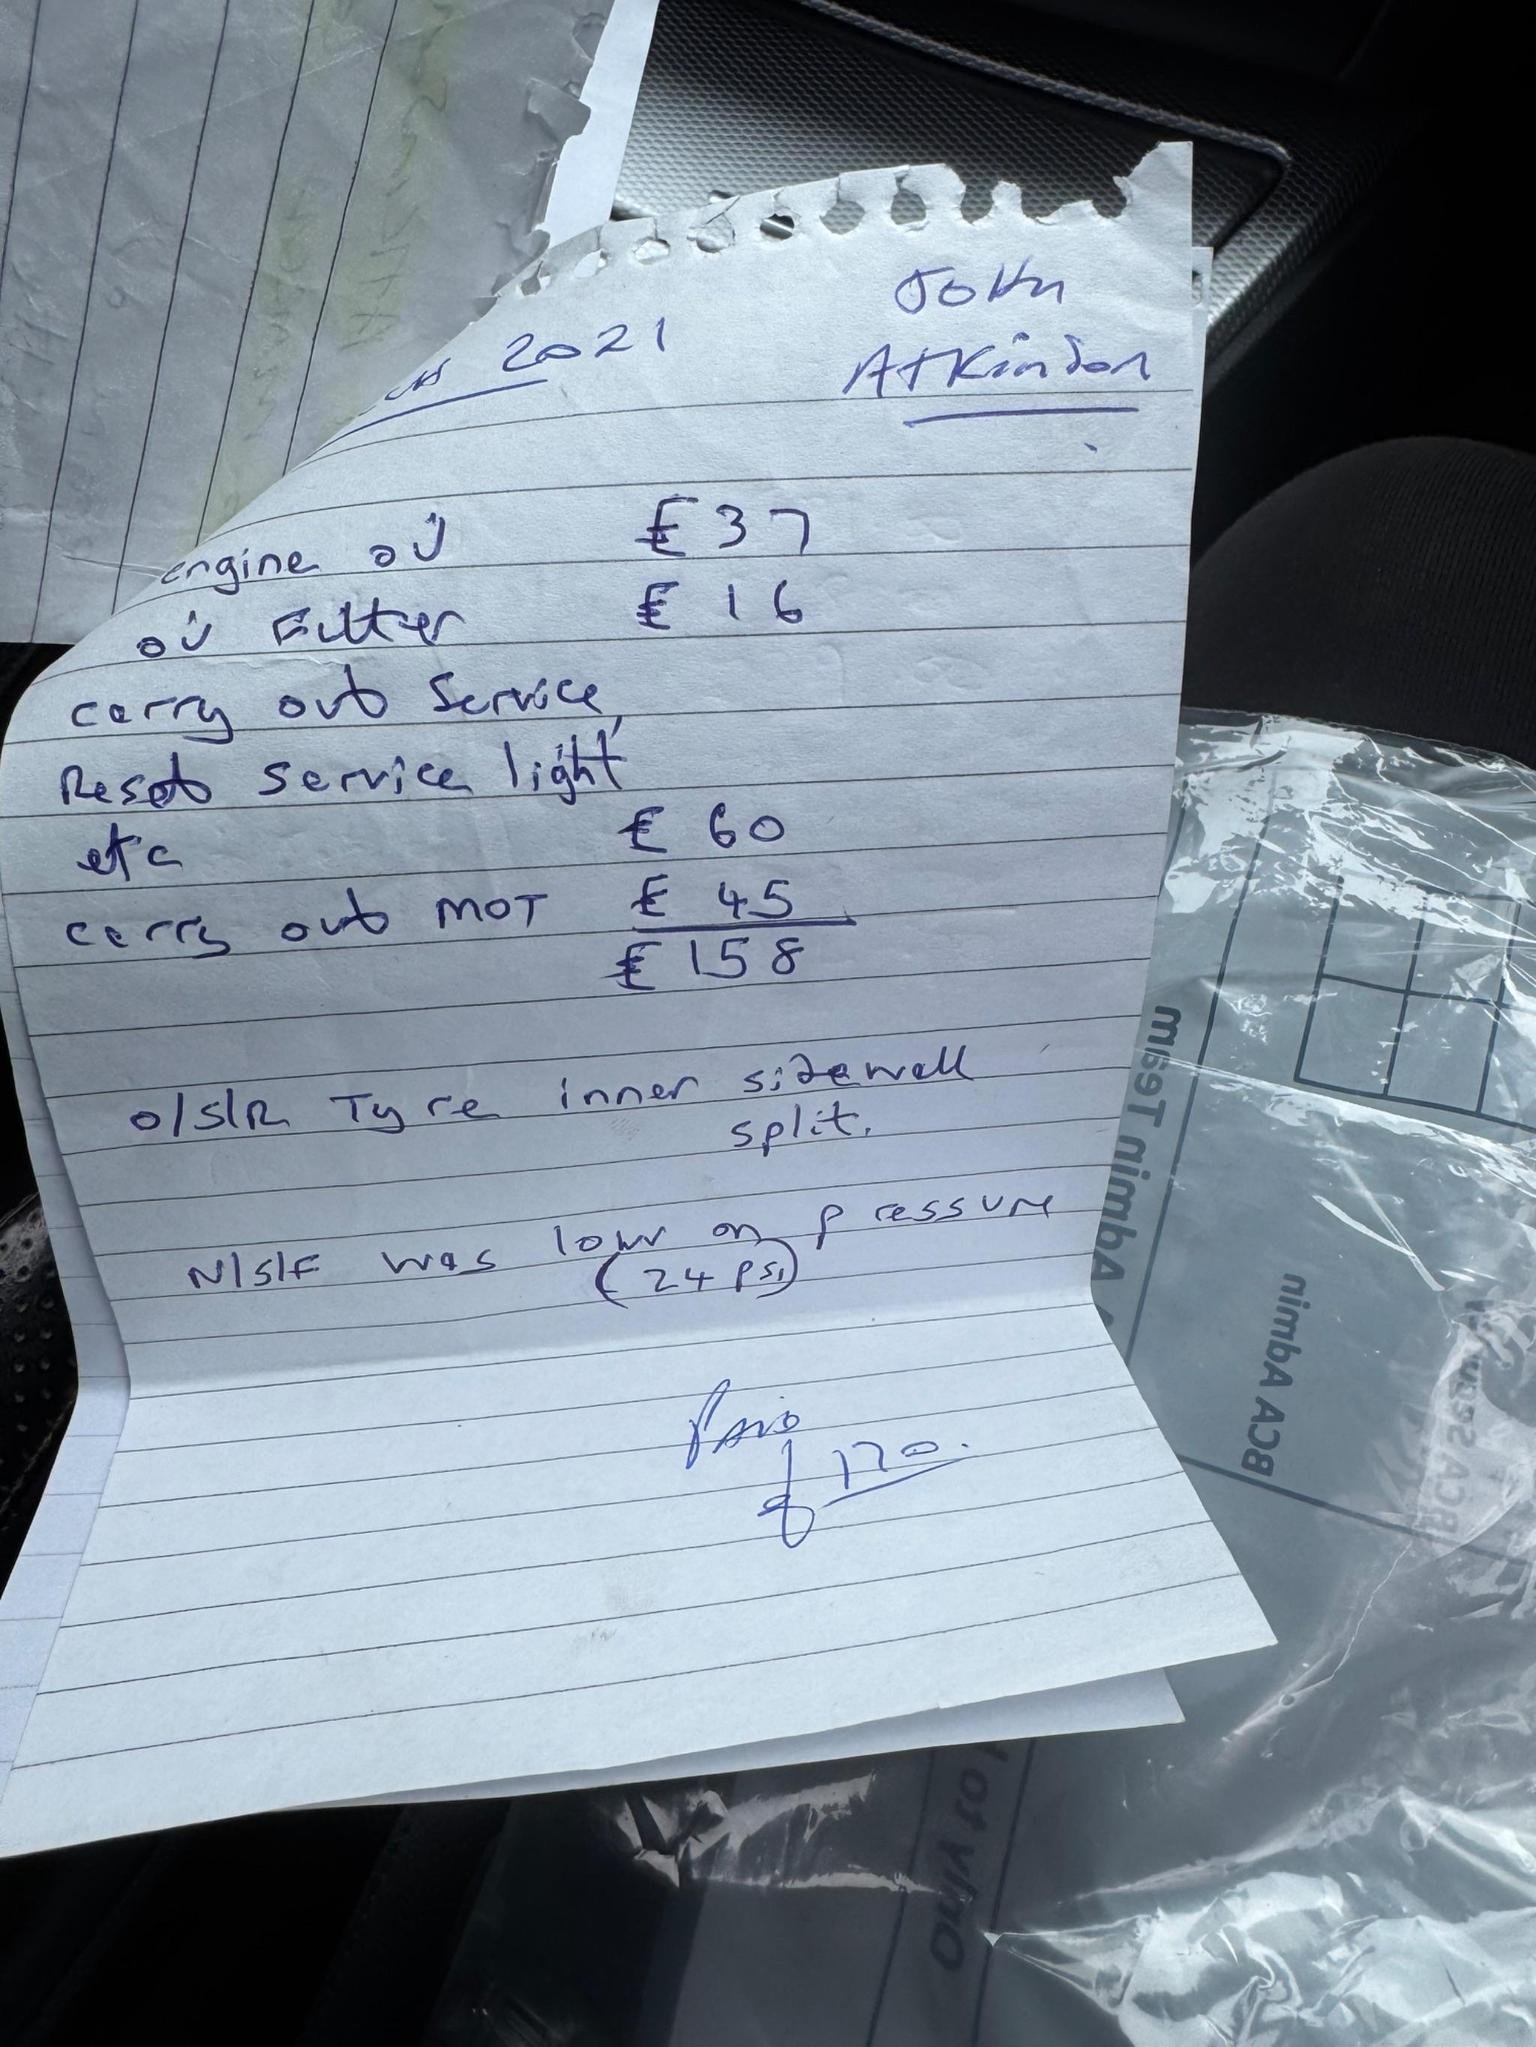 2021
John
Atkinson
engine oil £37
oil Filter £16
carry out Service,
Reset service light,
etc £60
carry out MOT £45
£158
O/S/R Tyre inner sidewall
split.
N/S/F was low on pressure
(24 psi)
Paid
£170.
BCA Ambnin